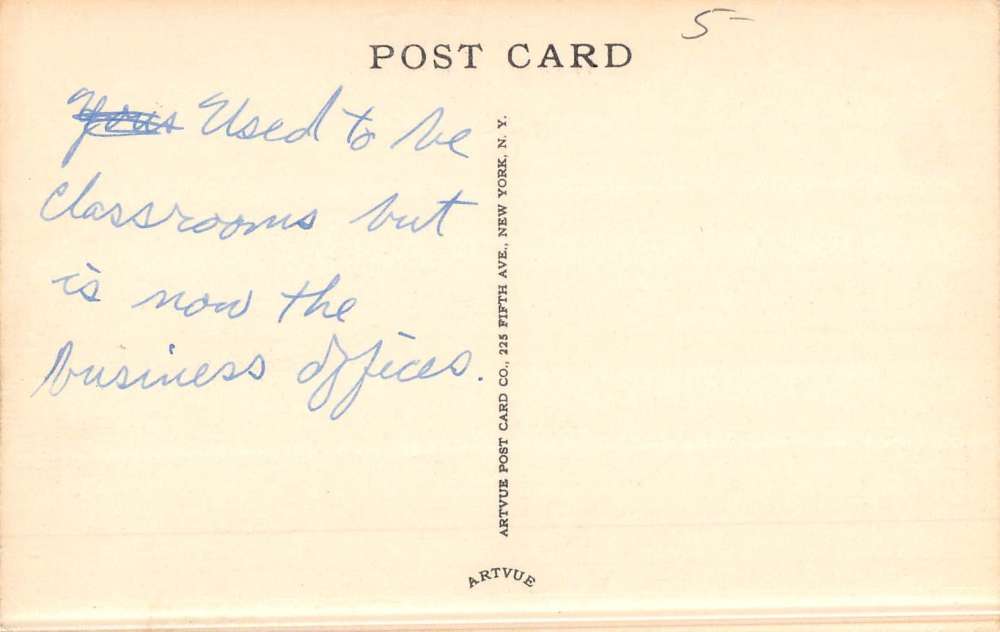 5-
POST CARD
Used to be
classrooms but
is now the
business offices.
ARTVUE POST CARD CO., 225 FIFTH AVE., NEW YORK, N. Y.
ARTVUE